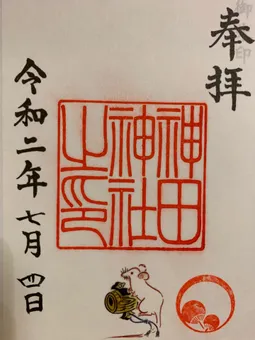 奉拝
神田
神社
之印
令和二年七月四日